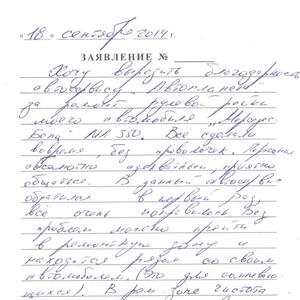 "18" сентября 2014 г.
ЗАЯВЛЕНИЕ №
Хочу выразить благодарность
автосервису "Автопланета
за ремонт рулевой рейки
моего автомобиля "Мерседес-
Бенц" ML 350. Все сделали
вовремя, без проволочек. Персонал
абсолютно адекватный, приятно
общаться. В данный автосерви-
обратился в первый раз,
всё очень понравилось. Без
проблем можно пройти
в ремонтную зону и
находится рядом со своим
автомобилем. (Это для сомневаю-
щихся). В рем. зоне чистота